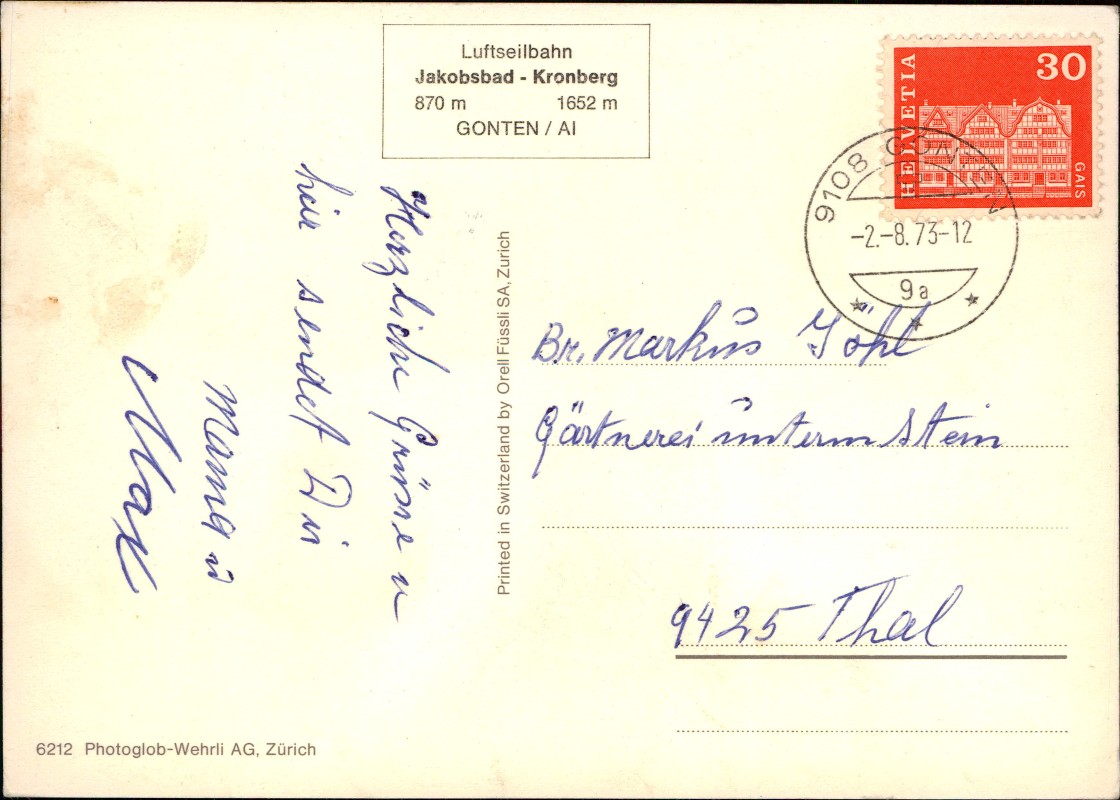 Luftseilbahn
Jakobsbad - Kronberg
870 m 1652 m
GONTEN / AI
HELVETIA
30
GAIS
9108 GONTEN
-2.-8.73-12
9a
Herzliche Grüsse u
hier sendet Dir
Mama u
Max
Printed in Switzerland by Orell Füssli SA, Zurich
Br. Markus
Gärtnerei unterm Stein
9425 Thal
6212 Photoglob-Wehrli AG, Zürich